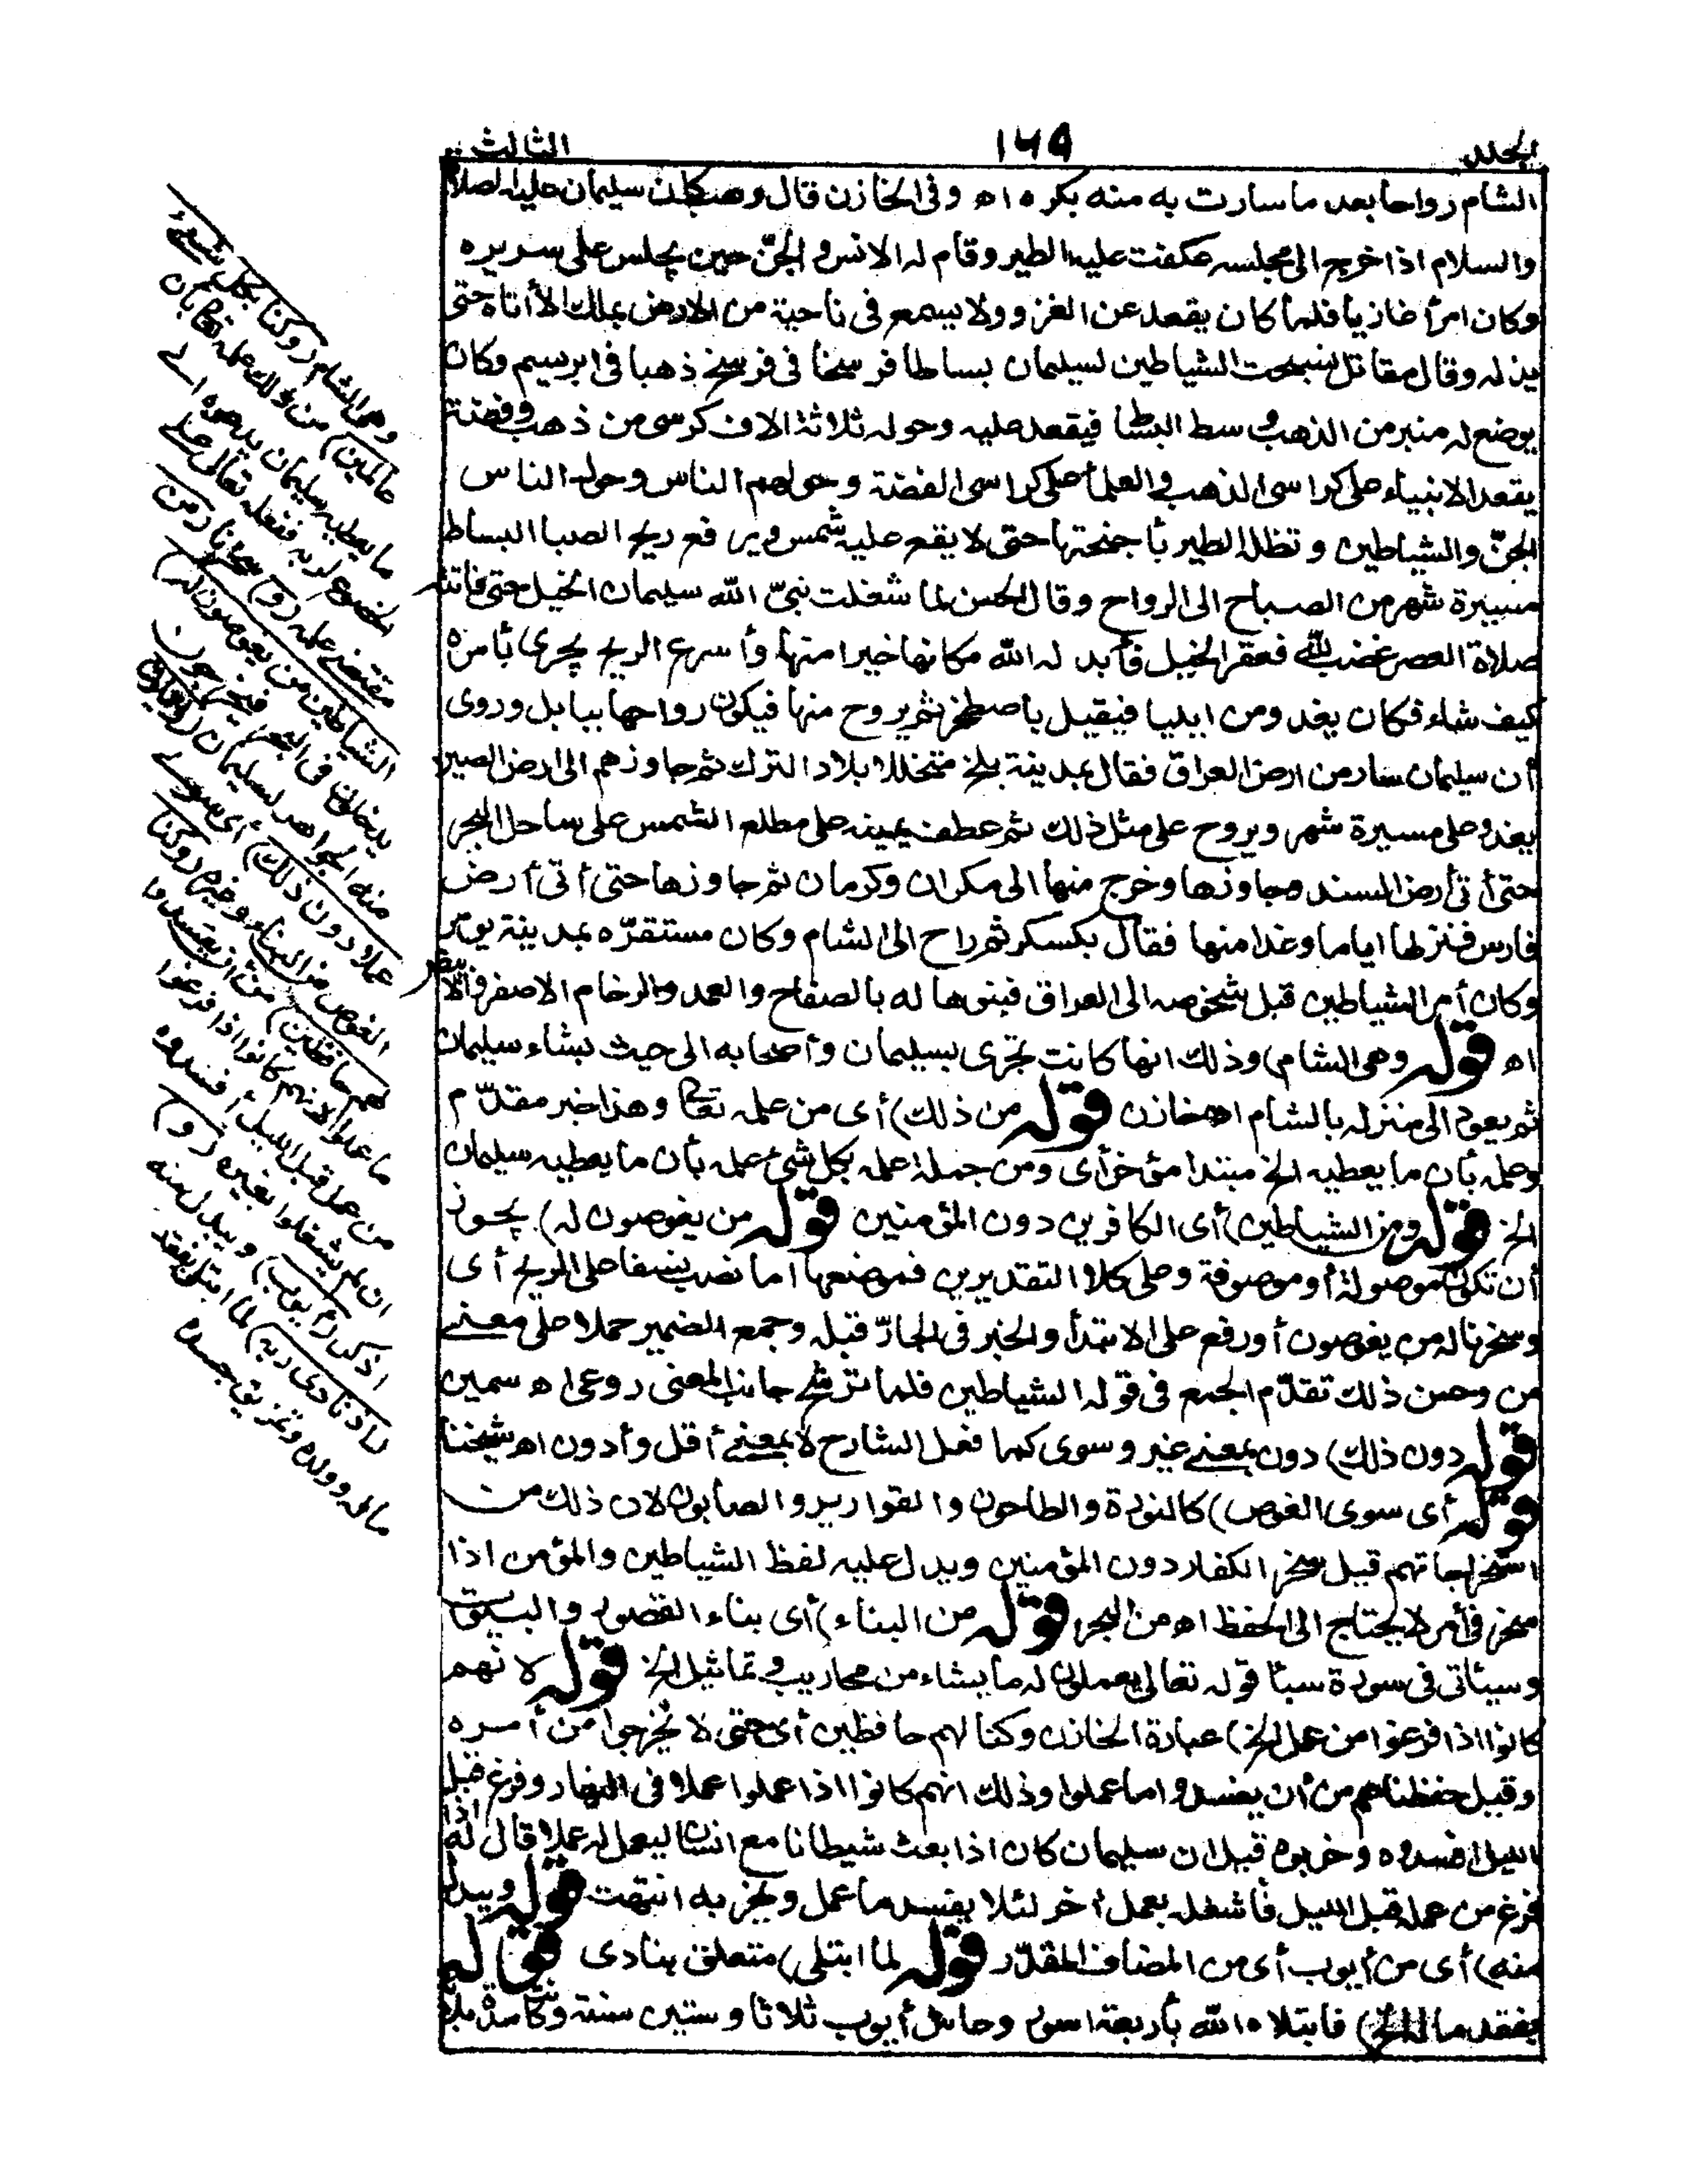 المجلد
١٦٩
الثالث
الشام رواحا بعد ما سارت به منه بكرة اه وفى الخازن قال وهب كان سليمان عليه الصلاة
والسلام اذا خرج الى مجلسه عكفت عليه الطير وقام له الانس والجنّ حين يجلس على سريره
وكان امرأ غازيا قلما كان يقعد عن الغزو ولا يسمع فى ناحية من الارض بملك الا أتاه حتى
يذله وقال مقاتل نسجت الشياطين لسليمان بساطا فرسخا فى فرسخ ذهبا فى ابريسم وكان
يوضع له منبر من الذهب وسط البساط فيقعد عليه وحوله ثلاثة الاف كرسى من ذهب وفضة
يقعد الانبياء على كراسى الذهب والعلماء على كراسى الفضة وحولهم الناس وحول الناس
الجنّ والشياطين وتظله الطير بأجنحتها حتى لا يقع عليه شمس ويرفع ريح الصبا البساط
مسيرة شهر من الصباح الى الرواح وقال الحسن لما شغلت نبىّ الله سليمان الخيل حتى فاتته
صلاة العصر غضب لله فعقر الخيل فأبدله الله مكانها خيرا منها وأسرع الريح يجرى بأمره
كيف شاء فكان يغدو من ايليا فيقيل بأصطخر ثم يروح منها فيكون رواحها ببابل وروى
أن سليمان سار من ارض العراق فقال بمدينة بلخ متخللا بلاد الترك ثم جاوزهم الى ارض الصين
يغدو على مسيرة شهر ويروح على مثل ذلك ثم عطف يمينه على مطلع الشمس على ساحل البحر
حتى أتى أرض السند وجاوزها وخرج منها الى مكران وكرمان ثم جاوزها حتى أتى أرض
فارس فنزلها اياما وغدا منها فقال بكسكر ثم راح الى الشام وكان مستقرّه بمدينة
وكان أمر الشياطين قبل شخوصه الى العراق فبنوها له بالصفاح والعمد والرخام الاصفر
اه قوله وهى الشام) وذلك انها كانت تجرى بسليمان وأصحابه الى حيث يشاء سليمان
ثم يعود الى منزله بالشام اه خازن قوله من ذلك) أى من علمه تعالى وهذا خبر مقدّم
وعلمه بأن ما يعطيه الخ مبتدا مؤخر أى ومن جملة علمه بكل شئ علمه بأن ما يعطيه سليمان
الخ قوله ومن الشياطين) أى الكافرين دون المؤمنين قوله من يغوصون له) يجوز
أن تكون موصولة أو موصوفة وعلى كلا التقديرين فموضعها اما نصب نسقا على الريح أى
وسخرنا له من يغوصون أو رفع على الابتدأ والخبر فى الجارّ قبله وجمع الضمير حملا على معنى
من وحسن ذلك تقدّم الجمع فى قوله الشياطين فلما ترشح جانب المعنى روعى اه سمين
قوله دون ذلك) دون بمعنى غير وسوى كما فعل الشارح لا بمعنى أقل وأدون اه شيخنا
قوله أى سوى الغوص) كالنورة والطاحون والقوارير والصابون لان ذلك من
استخراجاتهم قيل سخر الكفار دون المؤمنين ويدل عليه لفظ الشياطين والمؤمن اذا
سخر فى أمر لا يحتاج الى الحفظ اه من البحر قوله من البناء) أى بناء القصور والبيوت
وسيأتى فى سورة سبأ قوله تعالى يعملون له ما يشاء من محاريب وتماثيل الخ قوله لانهم
كانوا اذا فرغوا من عمل الخ) عبارة الخازن وكنا لهم حافظين أى حتى لا يخرجوا من أمره
وقيل حفظناهم من أن يفسدوا ما عملوا وذلك انهم كانوا اذا عملوا عملا فى النهار وفرغ قبل
الليل افسدوه وخربوه قيل ان سليمان كان اذا بعث شيطانا مع انسان ليعمل له عملا قال له اذا
فرغ من عمله قبل الليل فأشغله بعمل أخر لئلا يفسد ما عمل ويخربه انتهت قوله ويبدل
منه) أى من أيوب أى من المضاف المقدّر قوله لما ابتلى) متعلق بنادى قوله
بفقد ماله الخ) فابتلاه الله بأربعة امور وعاش أيوب ثلاثا وستين سنة وكانت مدّة بلائه
وهى الشام (وكنا بكل شئ
عالمين) من ذلك علمه تعالى بأن
ما يعطيه سليمان يدعوه الى
الخضوع لربه ففعله تعالى على
مقتضى علمه (و) سخرنا (من
الشياطين من يغوصون له)
يدخلون فى البحر فيخرجون
منه الجواهر لسليمان (ويعملون
عملا دون ذلك) أى سوى
الغوص من البناء وغيره (وكنا
لهم حافظين) من أن يفسدوا
ما عملوا لانهم كانوا اذا فرغوا
من عمل قبل الليل أفسدوه
ان لم يشغلوا بغيره (و)
اذكر (أيوب) ويبدل منه
(اذ نادى ربه) لما ابتلى بفقد
ماله وولده وتمزيق جسده